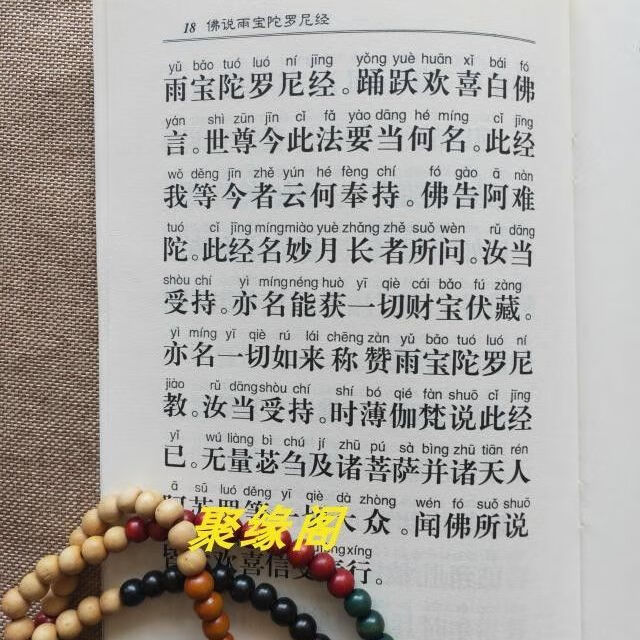 18 佛说雨宝陀罗尼经
yǔ bǎo tuó luó ní jīng yǒng yuè huān xǐ bái fó
雨宝陀罗尼经。踊跃欢喜白佛
yán shì zūn jīn cǐ fǎ yào dāng hé míng cǐ jīng
言。世尊今此法要当何名。此经
wǒ děng jīn zhě yún hé fèng chí fó gào ā nàn
我等今者云何奉持。佛告阿难
tuó cǐ jīng míng miào yuè zhǎng zhě suǒ wèn rǔ dāng
陀。此经名妙月长者所问。汝当
shòu chí yì míng néng huò yī qiè cái bǎo fú zàng
受持。亦名能获一切财宝伏藏。
yì míng yī qiè rú lái chēng zàn yǔ bǎo tuó luó ní
亦名一切如来称赞雨宝陀罗尼
jiào rǔ dāng shòu chí shí bó qié fàn shuō cǐ jīng
教。汝当受持。时薄伽梵说此经
yǐ wú liàng bì chú jí zhū pú sà bìng zhū tiān rén
已。无量苾刍及诸菩萨并诸天人
ā sū luó děng yī qiè dà zhòng wén fó suǒ shuō
大众。闻佛所说
xíng
欢喜信 行。
聚缘阁